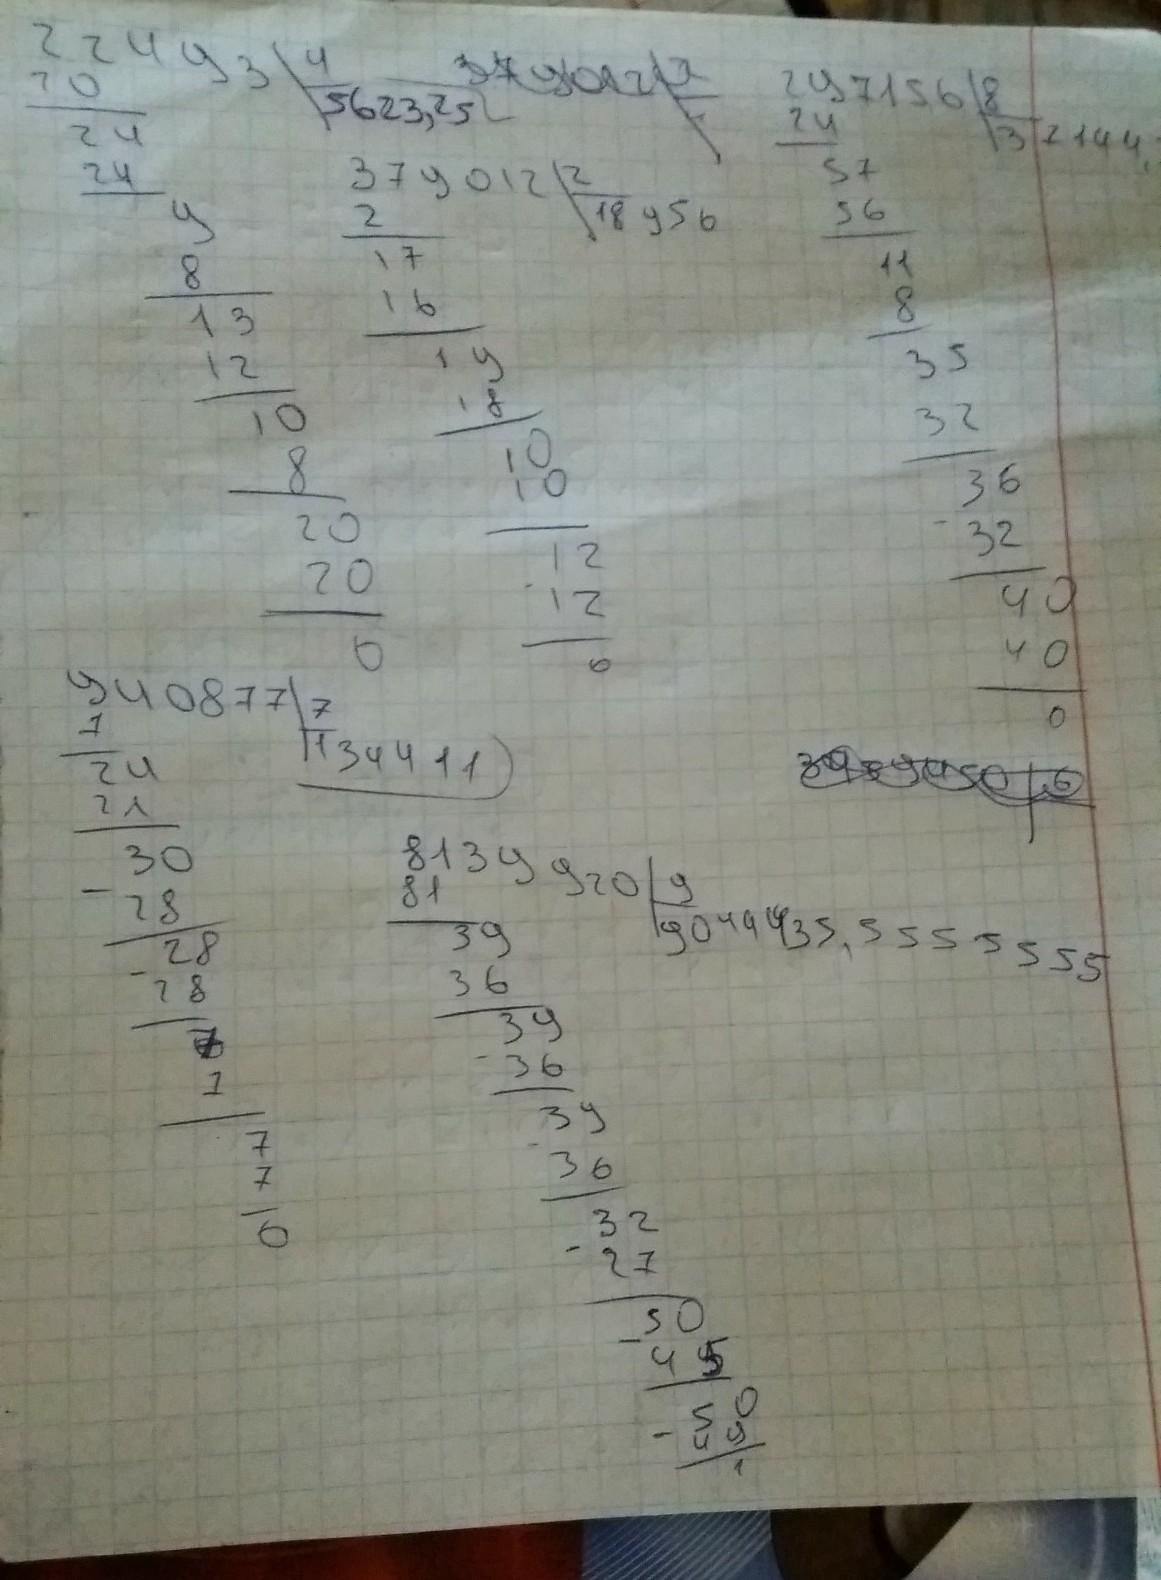 22493 4
20 5623,25
24
24
9
8
13
12
10
8
20
20
0
379012 2
2 18956
17
16
19
18
10
10
12
12
0
297156 8
24 37144,
57
56
11
8
35
32
36
- 32
40
40
0
940877 7
7 134411
24
21
30
- 28
28
- 28
7
7
7
7
0
8139920 9
81 904435,5555555
39
36
39
- 36
39
- 36
32
- 27
50
- 45
50
- 49
1